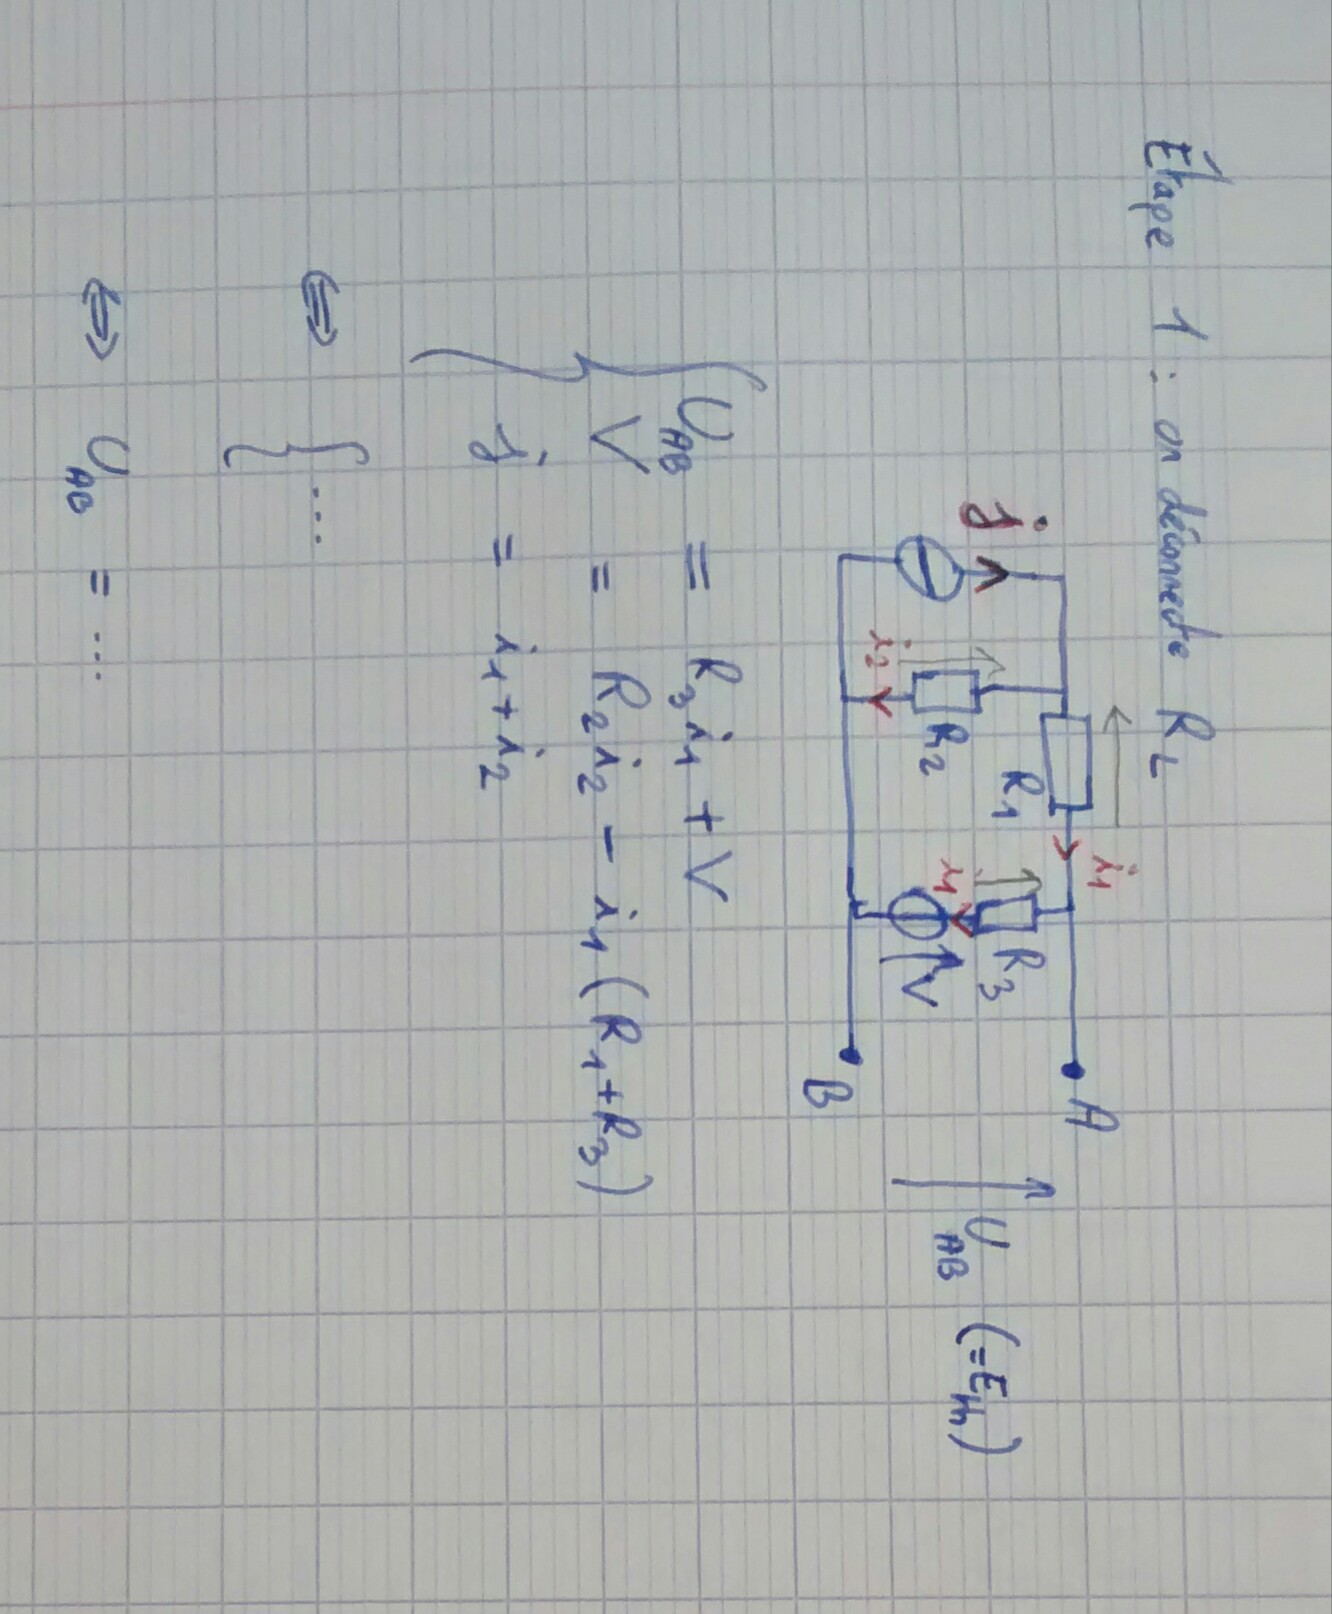 Étape 1 : on déconnecte RL
j
i2
R2
R1
i1
i1
R3
V
A
B
UAB (=Eth)
UAB = R3 i1 + V
V = R2 i2 - i1 (R1 + R3)
j = i1 + i2
⇔ { ...
⇔ UAB = ...